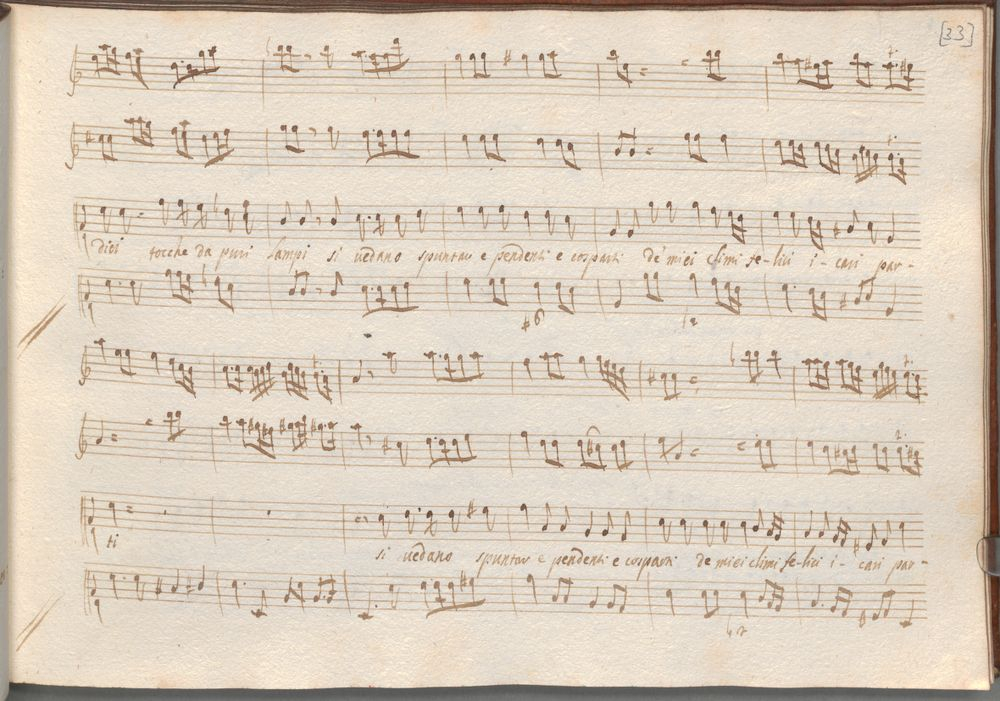 [33]
dici tocche da puri lampi si uedano spuntar e pendenti e cosparti de miei climi fe-lici i-cari par-
#6
ti si uedano spuntar e pendenti e cosparti de miei climi fe-lici i-cari par-
6